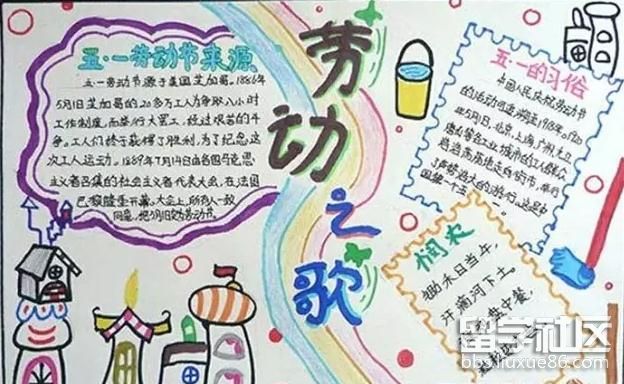 五·一劳动节来源
五·一劳动节源于美国芝加哥。1886年
5月1日芝加哥的20多万工人为争取八小时
工作制度,而举行大罢工,经过艰苦的斗
争。工人们终于获得了胜利,为了纪念这
次工人运动。1889年7月14日由各国马克思
主义者召集的社会主义者代表大会,在法国
巴黎隆重开幕。大会上,所有人一致
同意,把5月1日定为劳动节。
劳动之歌
五·一的习俗
中国人民庆祝劳动节
的活动可追溯至1918年。1920
年5月1日,北京,上海,广州,九江
唐山等各工业城市的工人群众
浩浩荡荡走向街市,举行
了声势浩大的游行。这是中
国第一个五
悯农
锄禾日当午,
汗滴禾下土。
留学社区
bbs.liuxue86.com